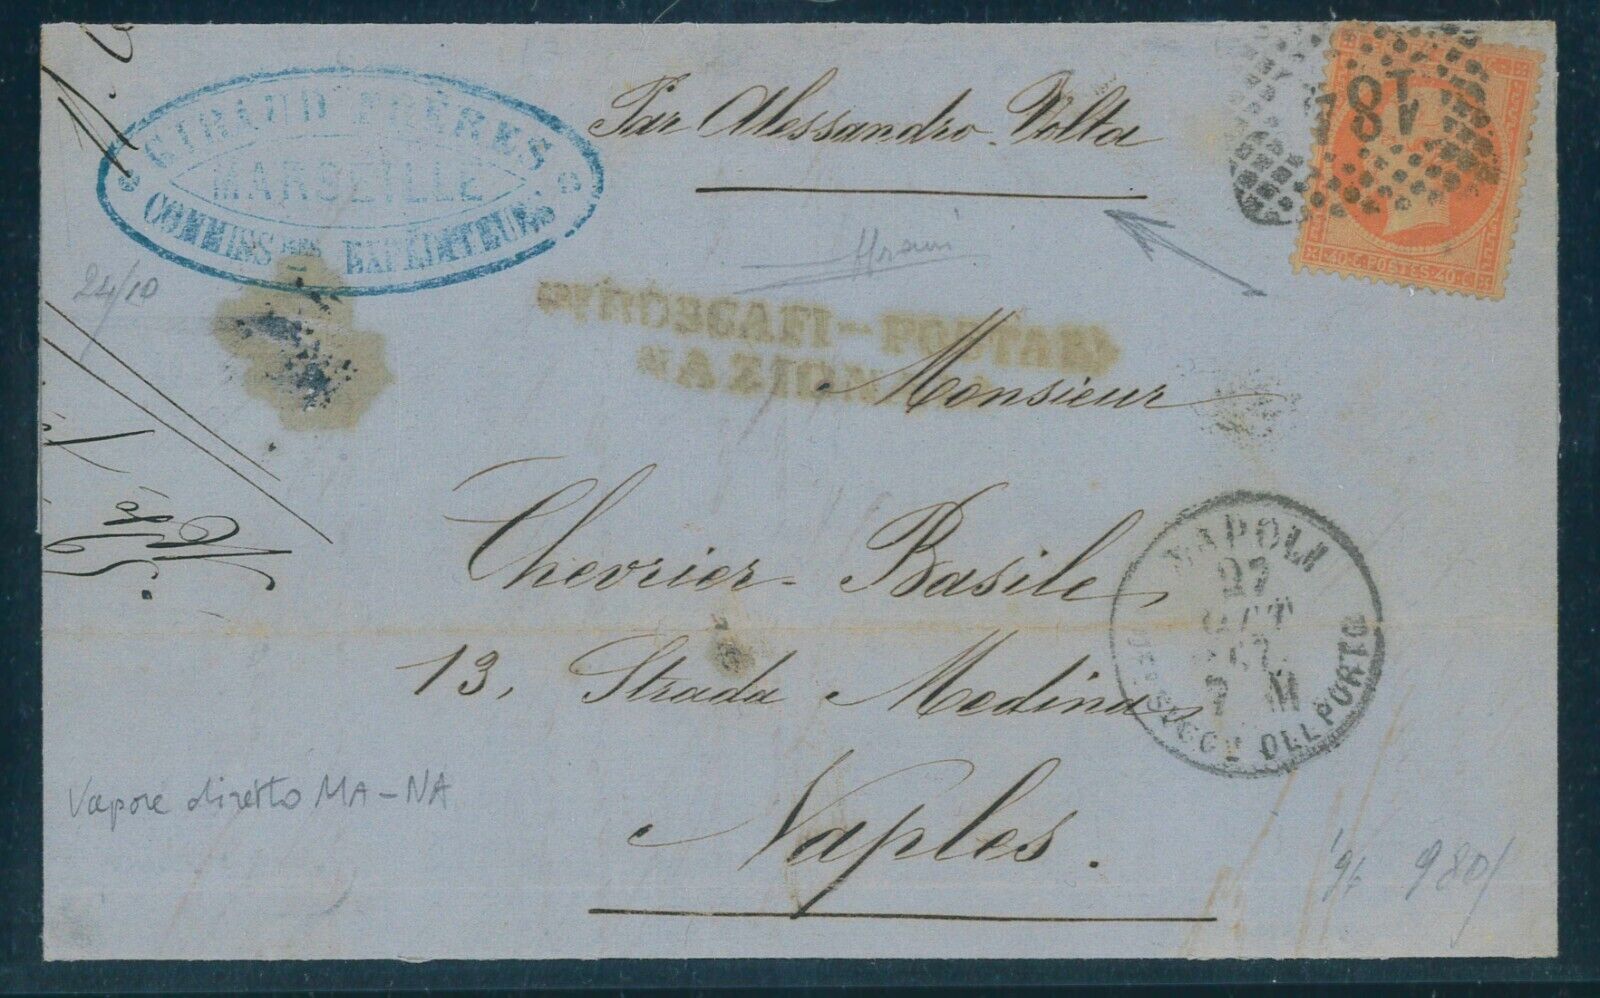 GIRAUD FRÈRES
MARSEILLE
COMMISS^RES EXPÉDITEURS
Par Alessandro Volta
181
40·C·POSTES·40·C
24/10
PIROSCAFI-POSTALI
NAZIONALI
Monsieur
Chevrier Basile
13, Strada Medina
Naples.
NAPOLI
27
OTT
M
SUCC DEL PORTO
Vapore diretto MA-NA
980/